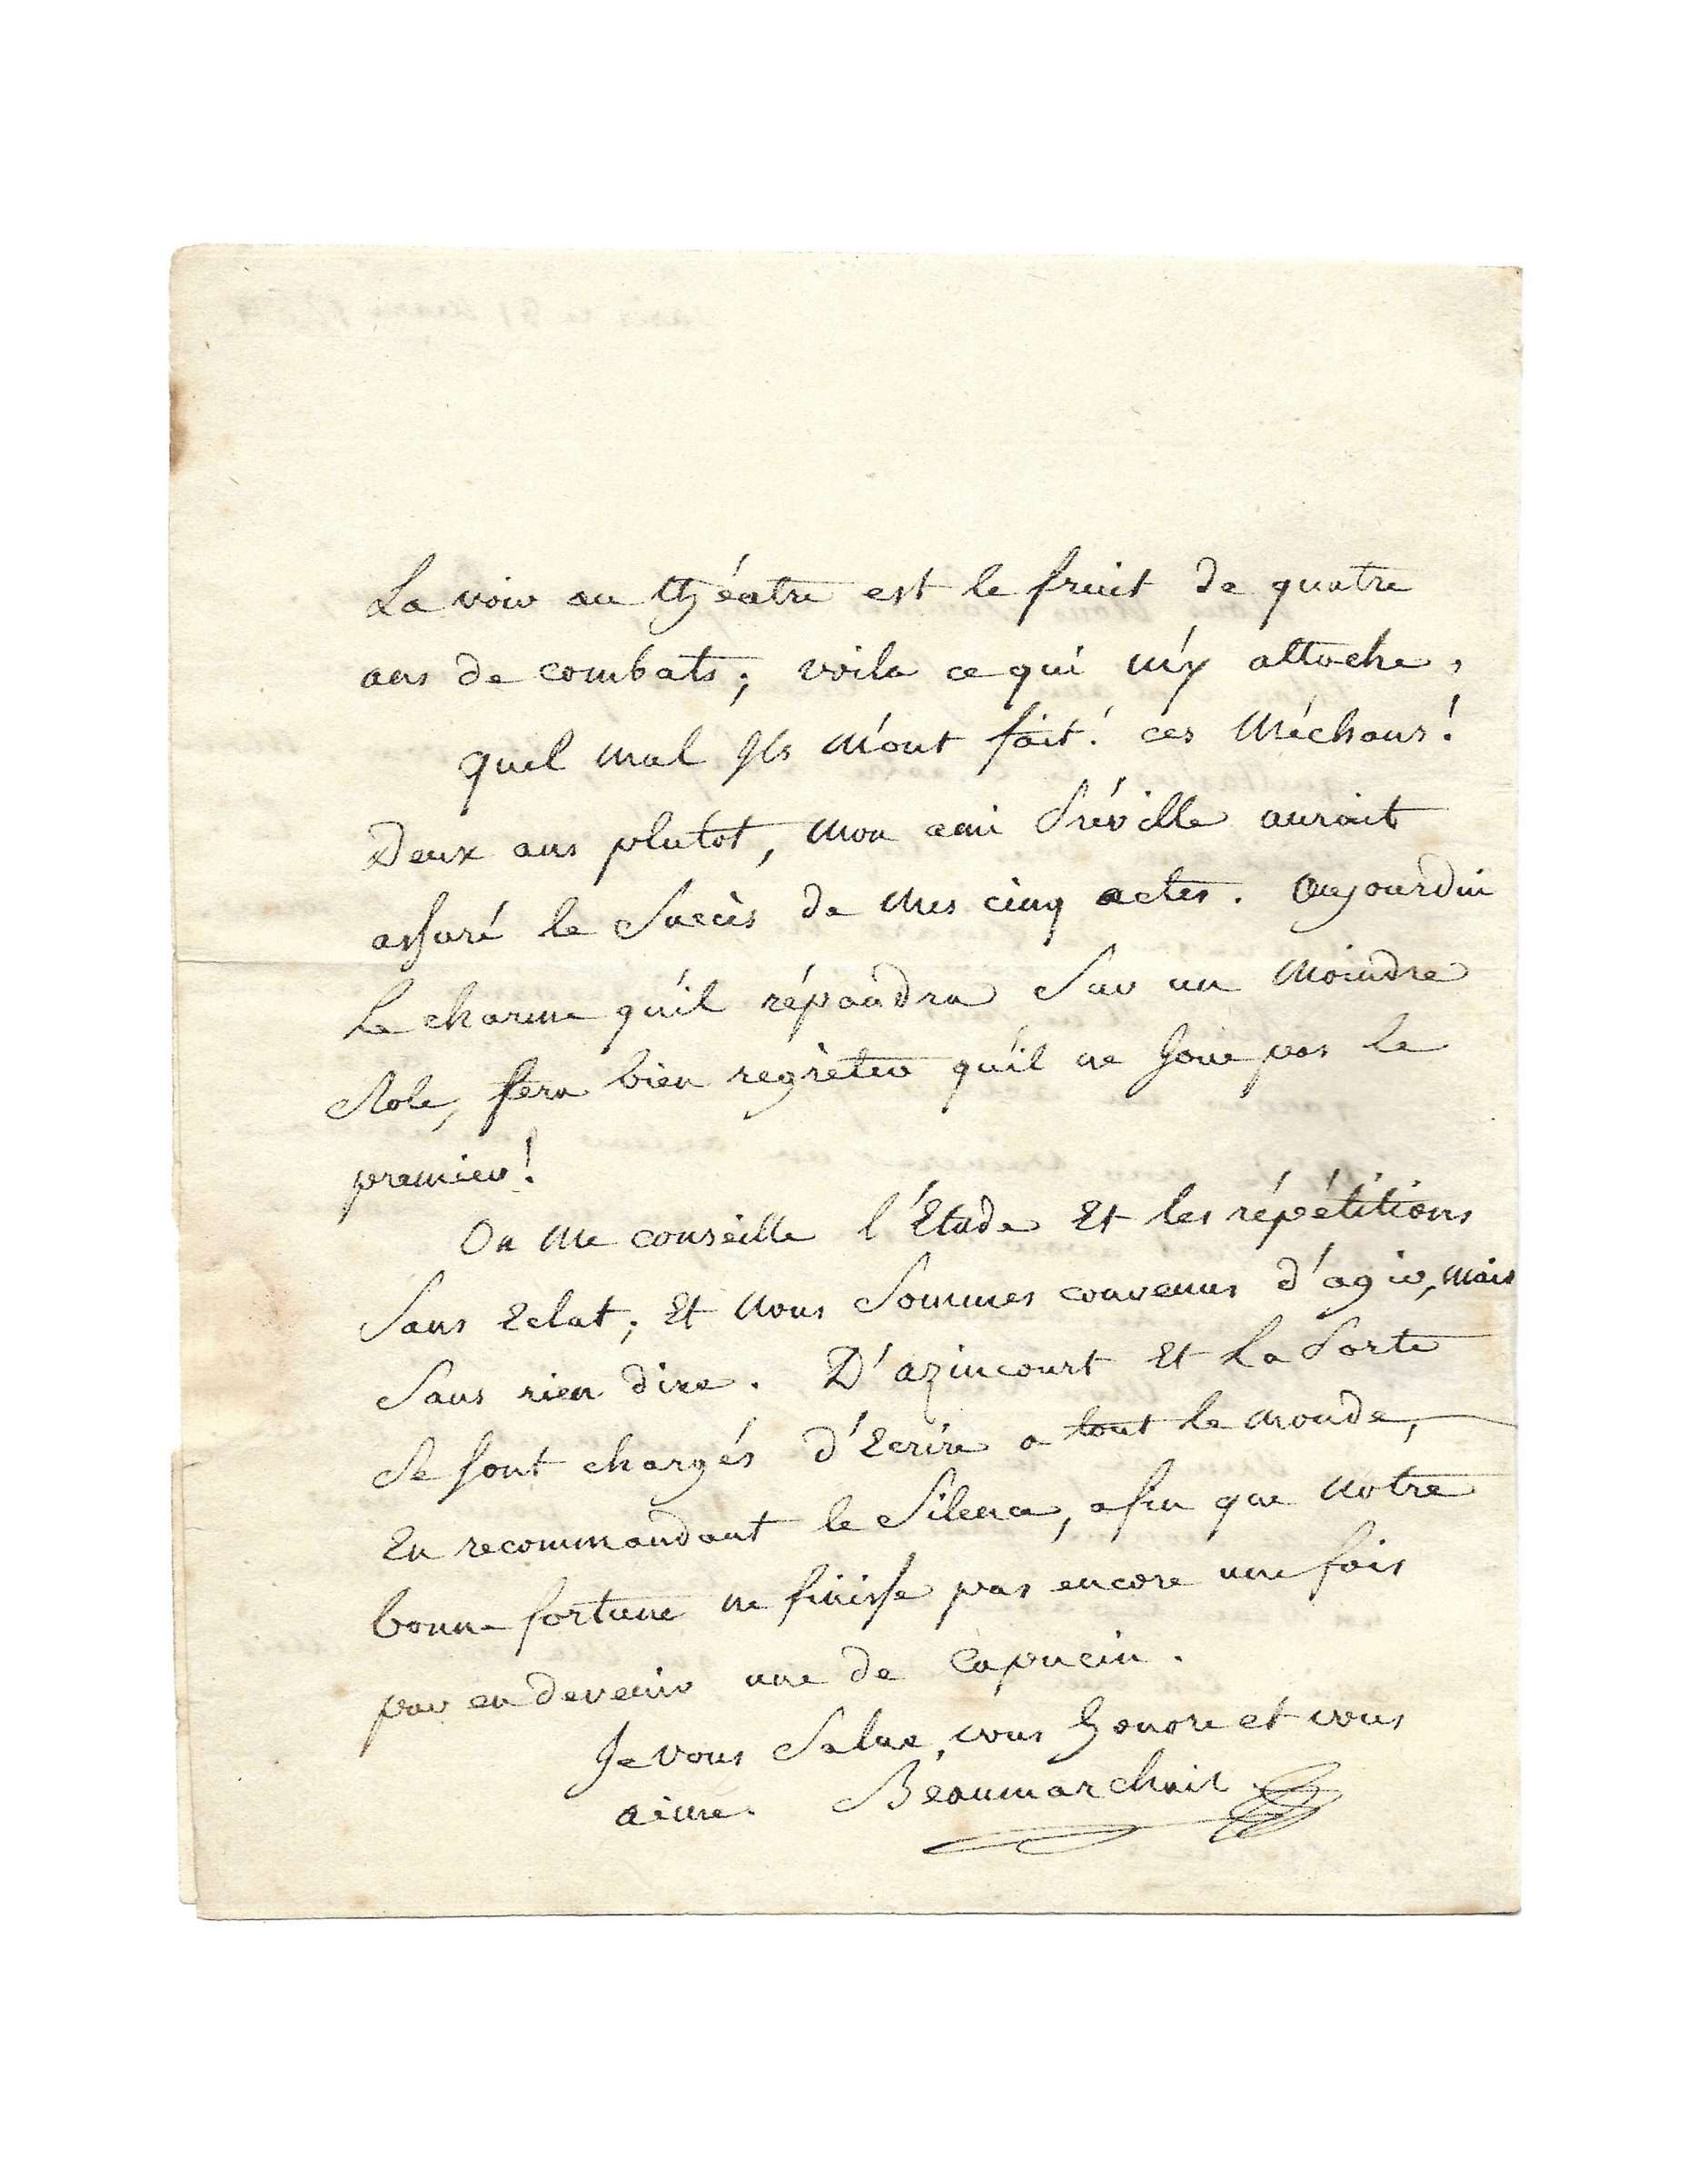 La voir au théatre est le fruit de quatre
ans de combats; voila ce qui m'y attache,
quel mal Ils m'ont fait! ces Méchans!
Deux ans plutot, mon ami Préville auroit
assuré le Succès de mes cinq actes. Aujourdui
Le charme qu'il répandra Sur un moindre
Role, fera bien regrèter qu'il ne Joue pas le
premier!
On me conseille l'Etude Et les répétitions
Sans Eclat; Et nous Sommes convenus d'agir, mais
Sans rien dire. D'azincourt Et La Porte
Se sont chargés d'Ecrire a tout le monde,
En recommandant le Silence, afin que notre
bonne fortune ne finisse pas encore une fois
par en devenir une de Capucin.
Je vous Salue, vous honore et vous
aime. Beaumarchais